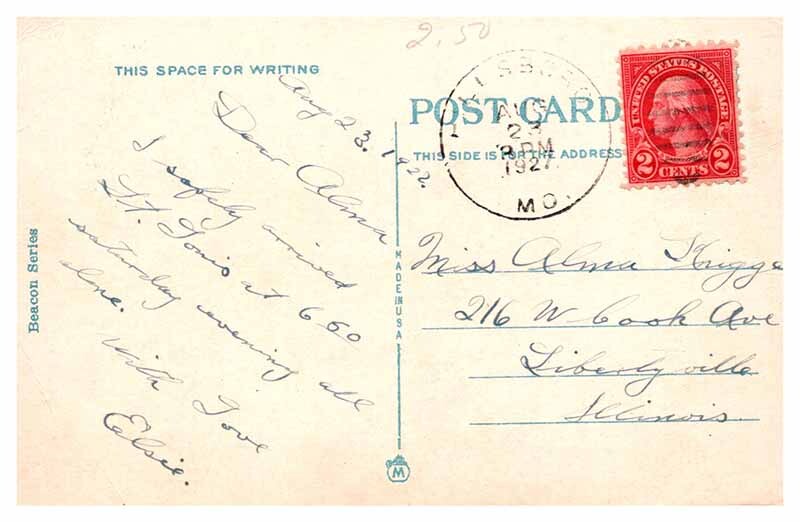 2.50
THIS SPACE FOR WRITING
Aug 23. 1922.
Dear Alma
I safely arrived
St. Louis at 6 60
saturday evening all
alone.
With Love
Ealsie.
Beacon Series
MADE IN USA
M
POST CARD
THIS SIDE IS FOR THE ADDRESS
AUG
23
PM
1927
MO.
UNITED STATES POSTAGE
2 CENTS 2
Miss Alma Krigge
216 W Cook Ave
Libertyville
Illinois.